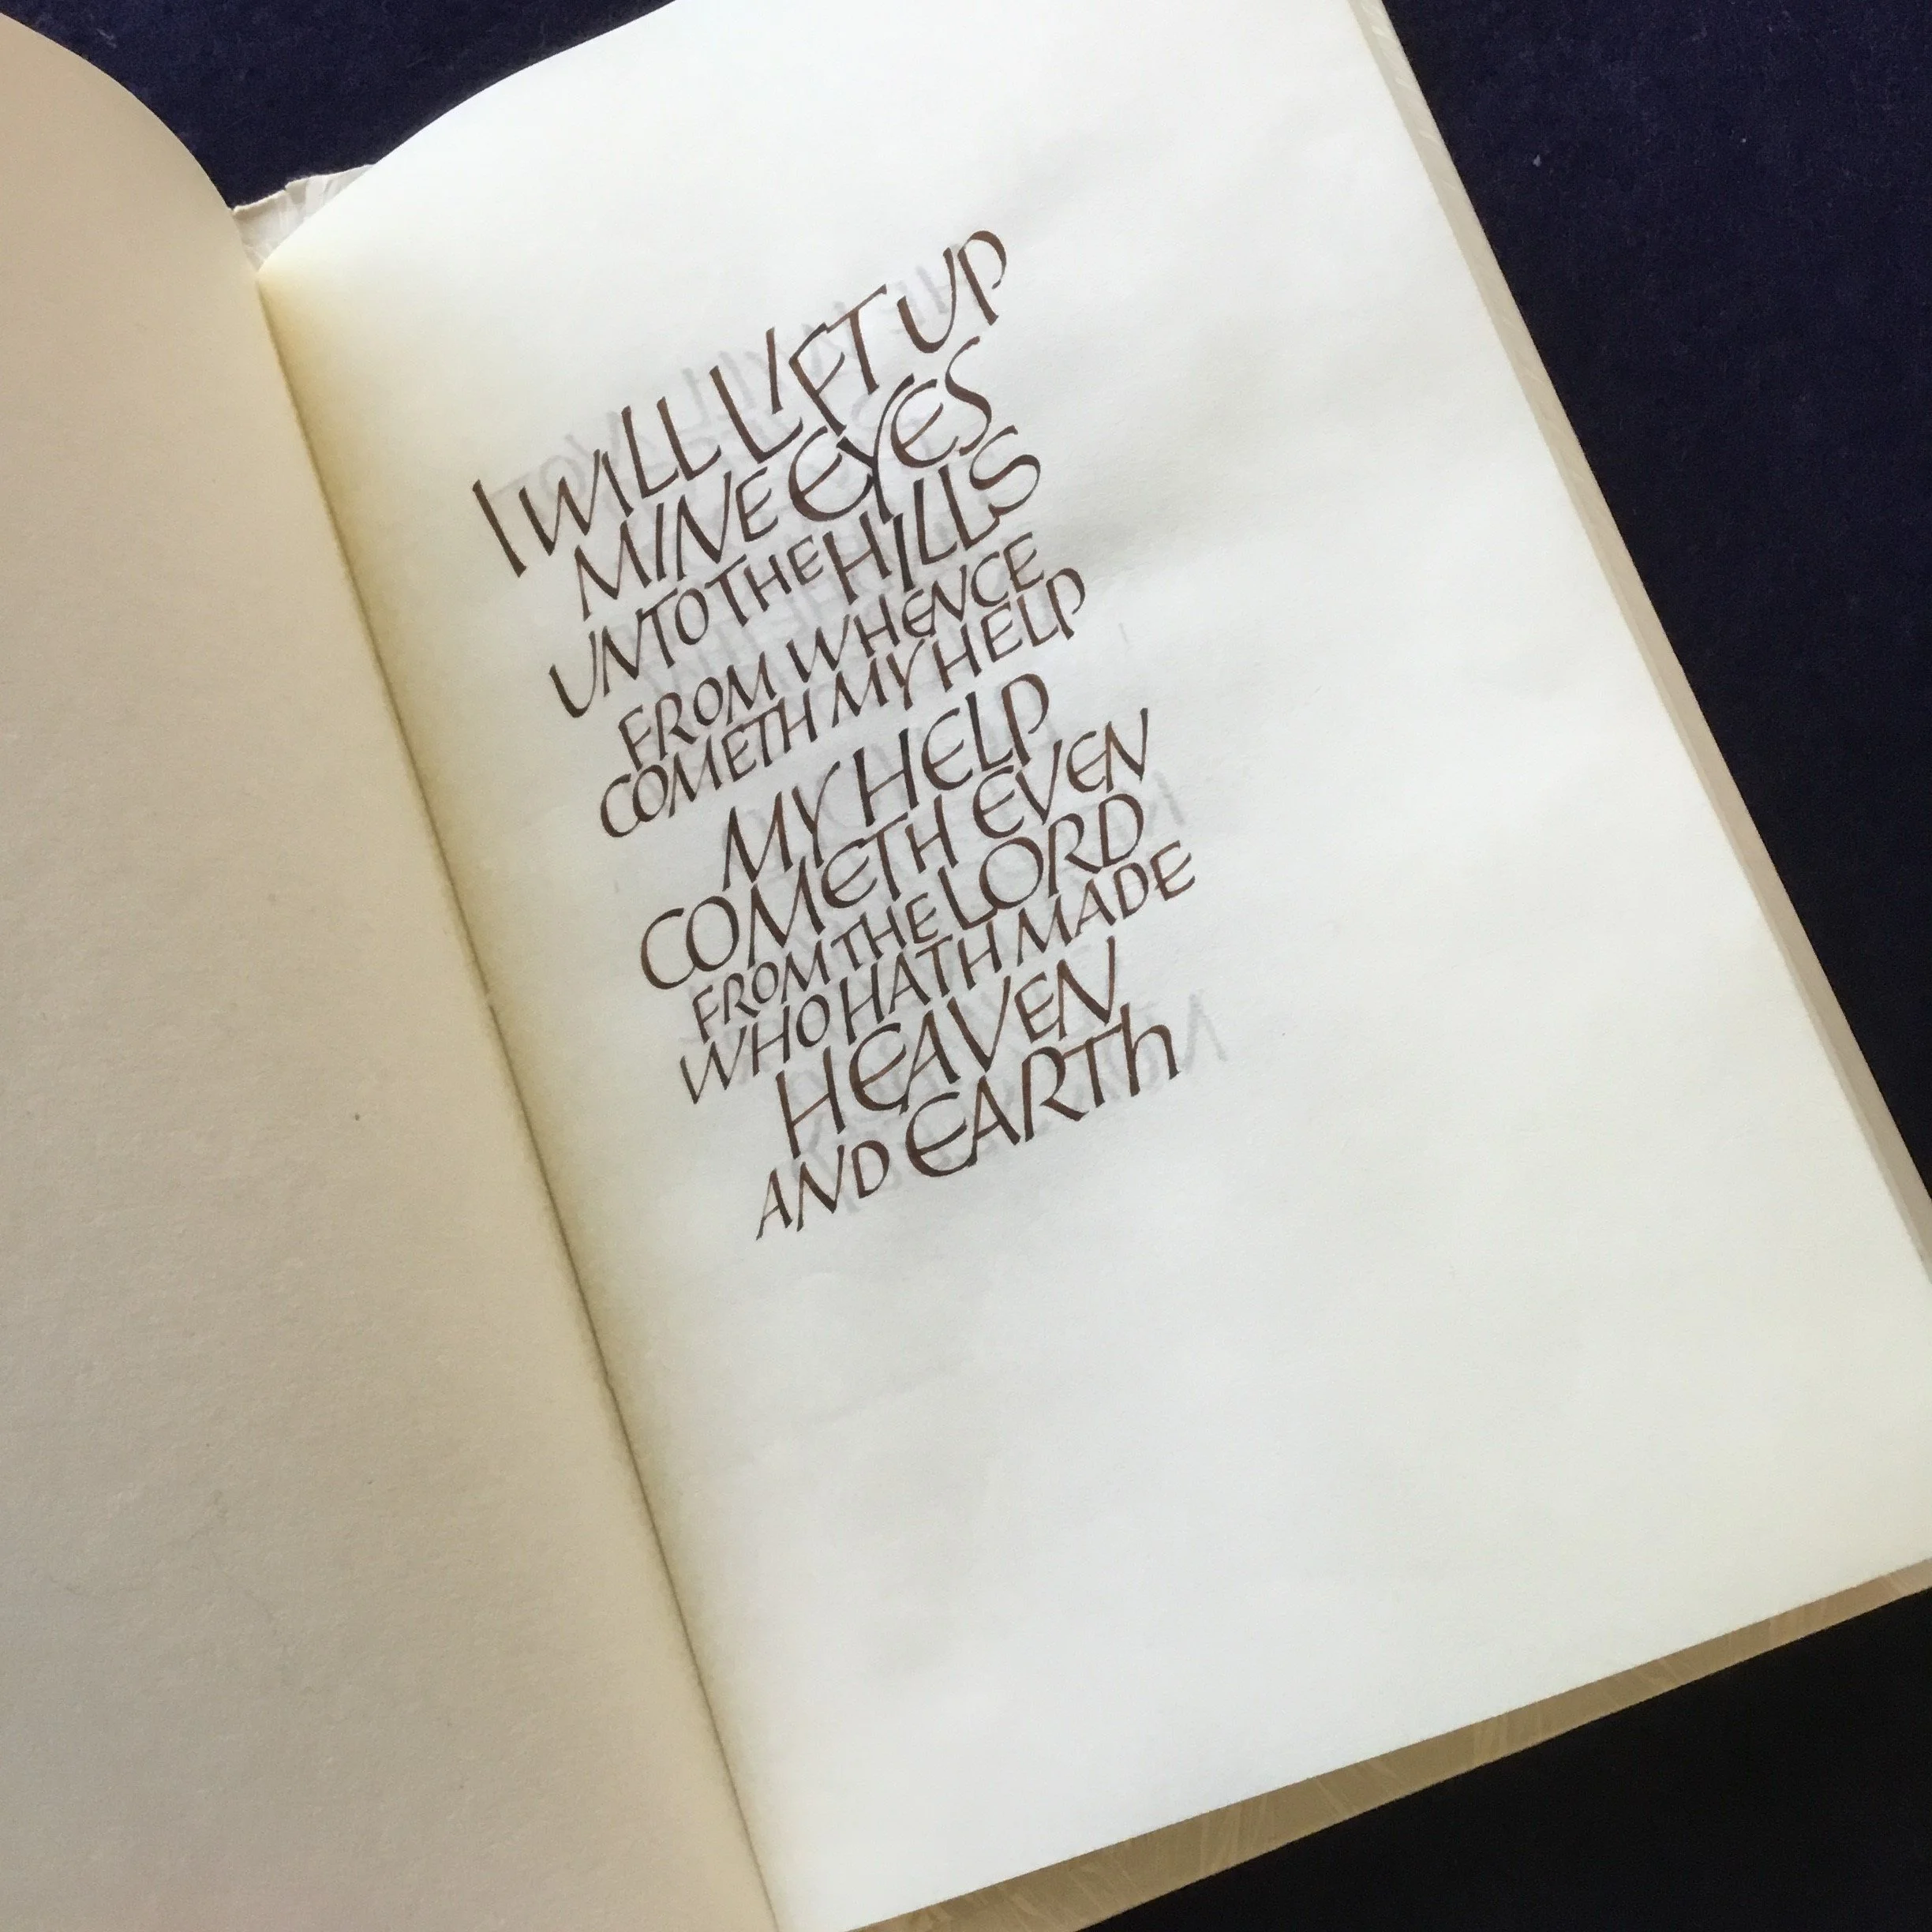 I WILL LIFT UP
MINE EYES
UNTO THE HILLS
FROM WHENCE
COMETH MY HELP
MY HELP
COMETH EVEN
FROM THE LORD
WHO HATH MADE
HEAVEN
AND EARTh